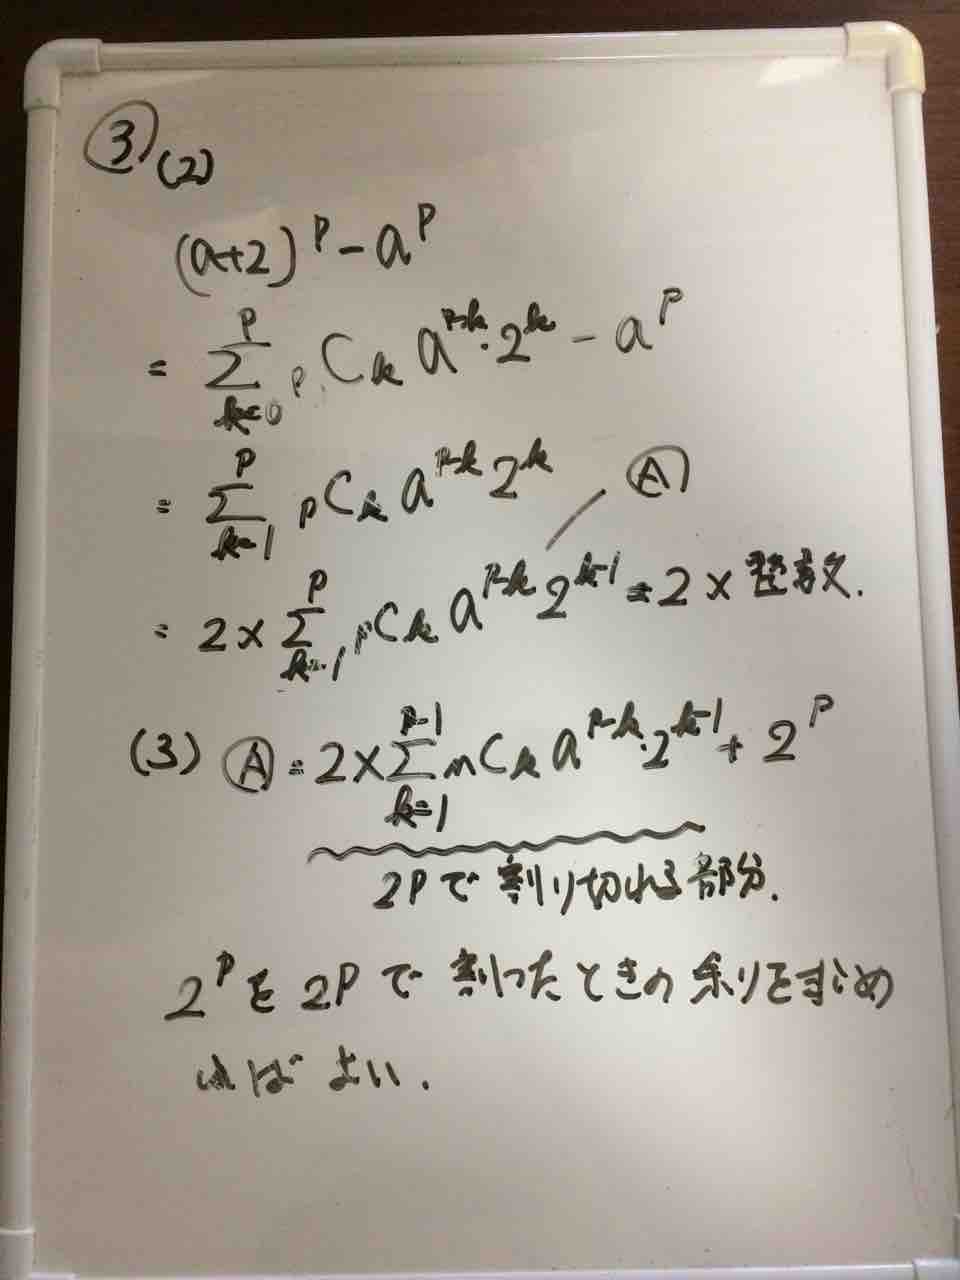 ③(2)
(a+2)^p - a^p
= Σ_{k=0}^{p} pCk a^{p-k}・2^k - a^p
= Σ_{k=1}^{p} pCk a^{p-k} 2^k Ⓐ
= 2×Σ_{k=1}^{p} pCk a^{p-k} 2^{k-1} = 2×整数.
(3) Ⓐ = 2×Σ_{k=1}^{p-1} nCk a^{p-k}・2^{k-1} + 2^p
2Pで割り切れる部分.
2^Pを2Pで割ったときの余りを求め
ればよい.